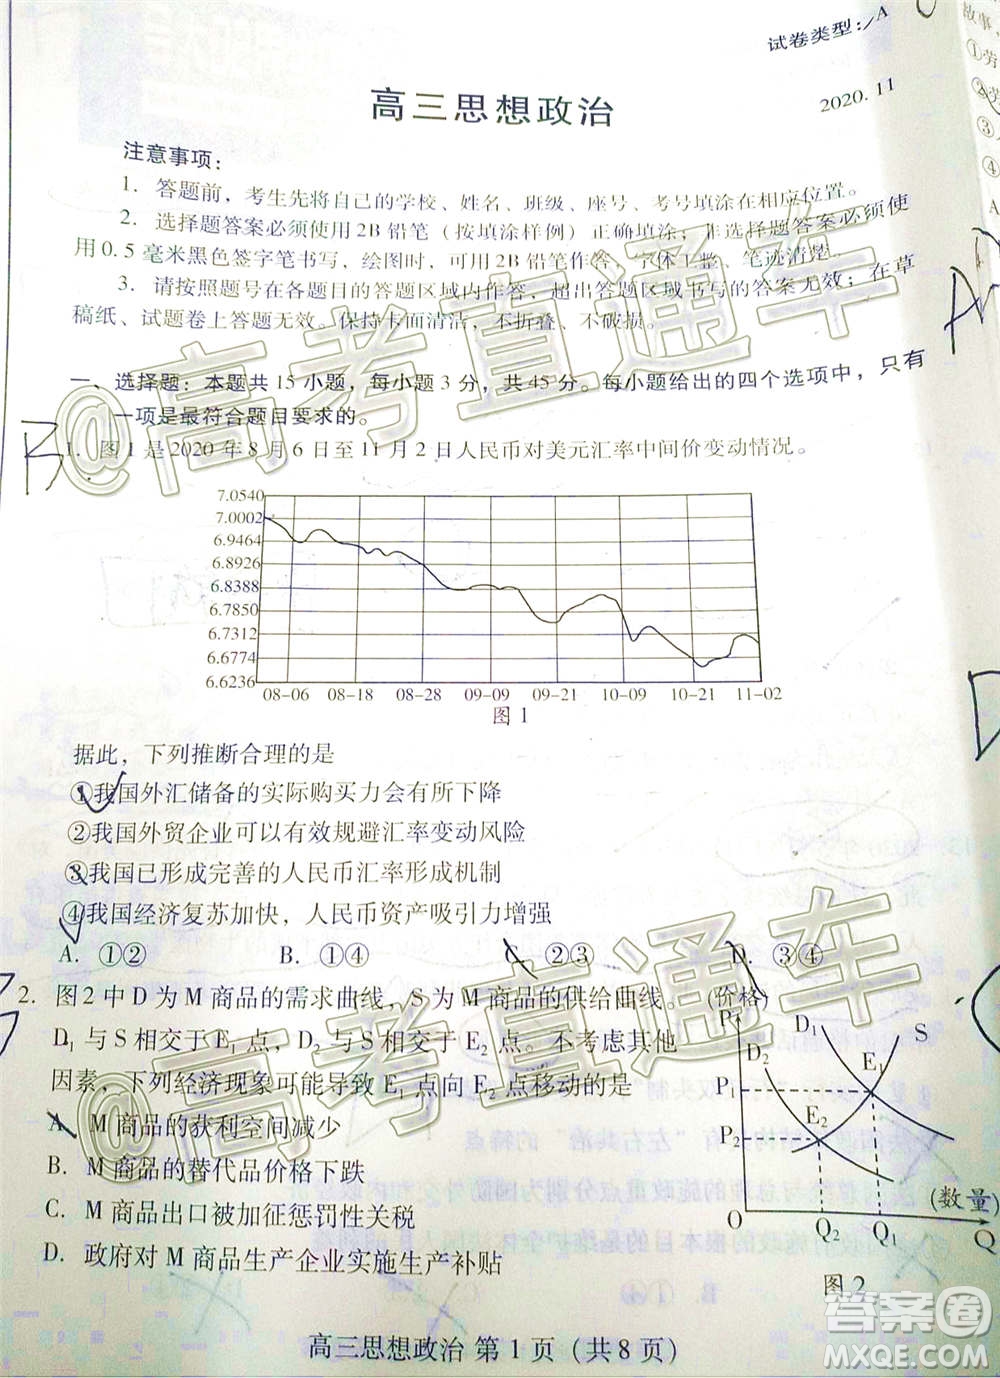 试卷类型:A
高三思想政治
2020.11
注意事项:
1. 答题前,考生先将自己的学校、姓名、班级、座号、考号填涂在相应位置。
2. 选择题答案必须使用2B铅笔(按填涂样例)正确填涂;非选择题答案必须使
用0.5毫米黑色签字笔书写,绘图时,可用2B铅笔作答,字体工整、笔迹清楚。
3. 请按照题号在各题目的答题区域内作答,超出答题区域书写的答案无效;在草
稿纸、试题卷上答题无效。保持卡面清洁,不折叠、不破损。
一、选择题:本题共15小题,每小题3分,共45分。每小题给出的四个选项中,只有
一项是最符合题目要求的。
B
1. 图1是2020年8月6日至11月2日人民币对美元汇率中间价变动情况。
7.0540
7.0002
6.9464
6.8926
6.8388
6.7850
6.7312
6.6774
6.6236
08-06 08-18 08-28 09-09 09-21 10-09 10-21 11-02
图1
据此,下列推断合理的是
①我国外汇储备的实际购买力会有所下降
②我国外贸企业可以有效规避汇率变动风险
③我国已形成完善的人民币汇率形成机制
④我国经济复苏加快,人民币资产吸引力增强
A. ①② B. ①④ C. ②③ D. ③④
2. 图2中D为M商品的需求曲线,S为M商品的供给曲线。
D₁与S相交于E₁点,D₂与S相交于E₂点。不考虑其他
因素,下列经济现象可能导致E₁点向E₂点移动的是
A. M商品的获利空间减少
B. M商品的替代品价格下跌
C. M商品出口被加征惩罚性关税
D. 政府对M商品生产企业实施生产补贴
(价格)
P D₁ S
D₂ E₁
P₁
E₂
P₂
(数量)
O Q₂ Q₁ Q
图2
高三思想政治 第1页(共8页)
故事,
①劳
②劳
③人
④
A
D
@高考直通车
@高考直通车
答案圈
MXQE.COM